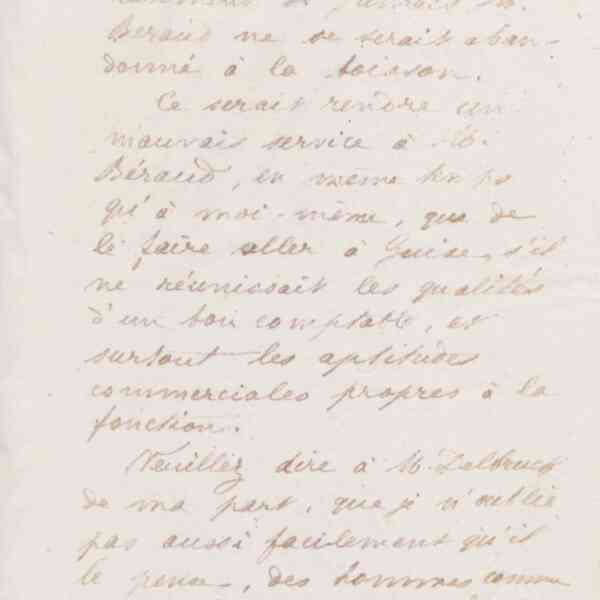 jamais M.
Beraud ne se serait aban-
donné à la boisson.
Ce serait rendre un
mauvais service à M.
Béraud, en même temps
qu'à moi-même, que de
le faire aller à Guise, s'il
ne réunissait les qualités
d'un bon comptable, et
surtout les aptitudes
commerciales propres à la
fonction.
Veuillez dire à M. Delbruck
de ma part, que je n'oublie
pas aussi facilement qu'il
le pense, des hommes comme